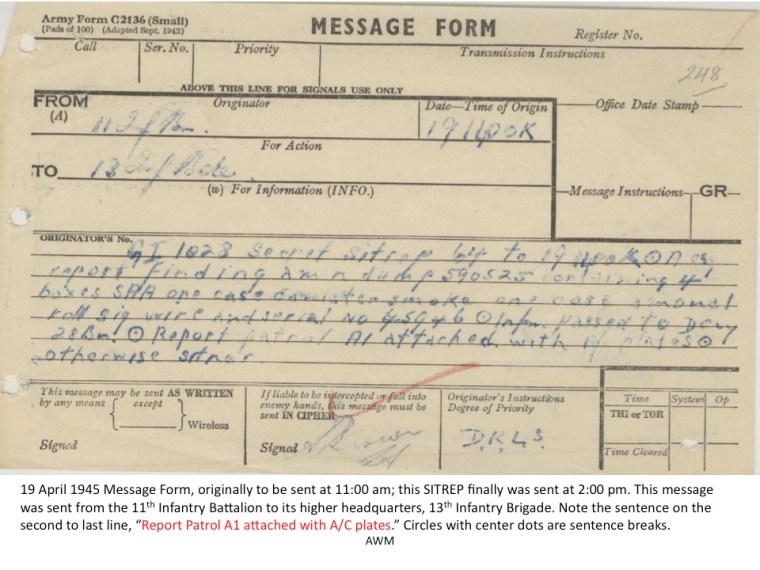 Army Form C2136 (Small)
(Pads of 100) (Adapted Sept. 1943)
MESSAGE FORM
Register No.
Call Ser. No. Priority Transmission Instructions
248
ABOVE THIS LINE FOR SIGNALS USE ONLY
FROM Originator Date—Time of Origin Office Date Stamp
(A) 11 Inf Bn.
For Action
TO 13 Inf Bde
(w) For Information (INFO.) Message Instructions GR
ORIGINATOR'S No.
GI 1028 Secret Sitrep to 19 ⊙ A
report finding amn dump 590525 containing 4
boxes SAA one case canister smoke one case
roll sig wire and serial No ⊙ Infm. passed to
28 Bn. ⊙ Report patrol A1 attached with A/C plates ⊙
otherwise sitnor
This message may be sent AS WRITTEN
by any means except
Wireless
Signed
If liable to be intercepted or fall into
enemy hands, this message must be
sent IN CIPHER
Signed
Originator's Instructions
Degree of Priority
D.K.L.S.
Time System Op
THI or TOR
Time Cleared
19 April 1945 Message Form, originally to be sent at 11:00 am; this SITREP finally was sent at 2:00 pm. This message
was sent from the 11th Infantry Battalion to its higher headquarters, 13th Infantry Brigade. Note the sentence on the
second to last line, “Report Patrol A1 attached with A/C plates.” Circles with center dots are sentence breaks.
AWM